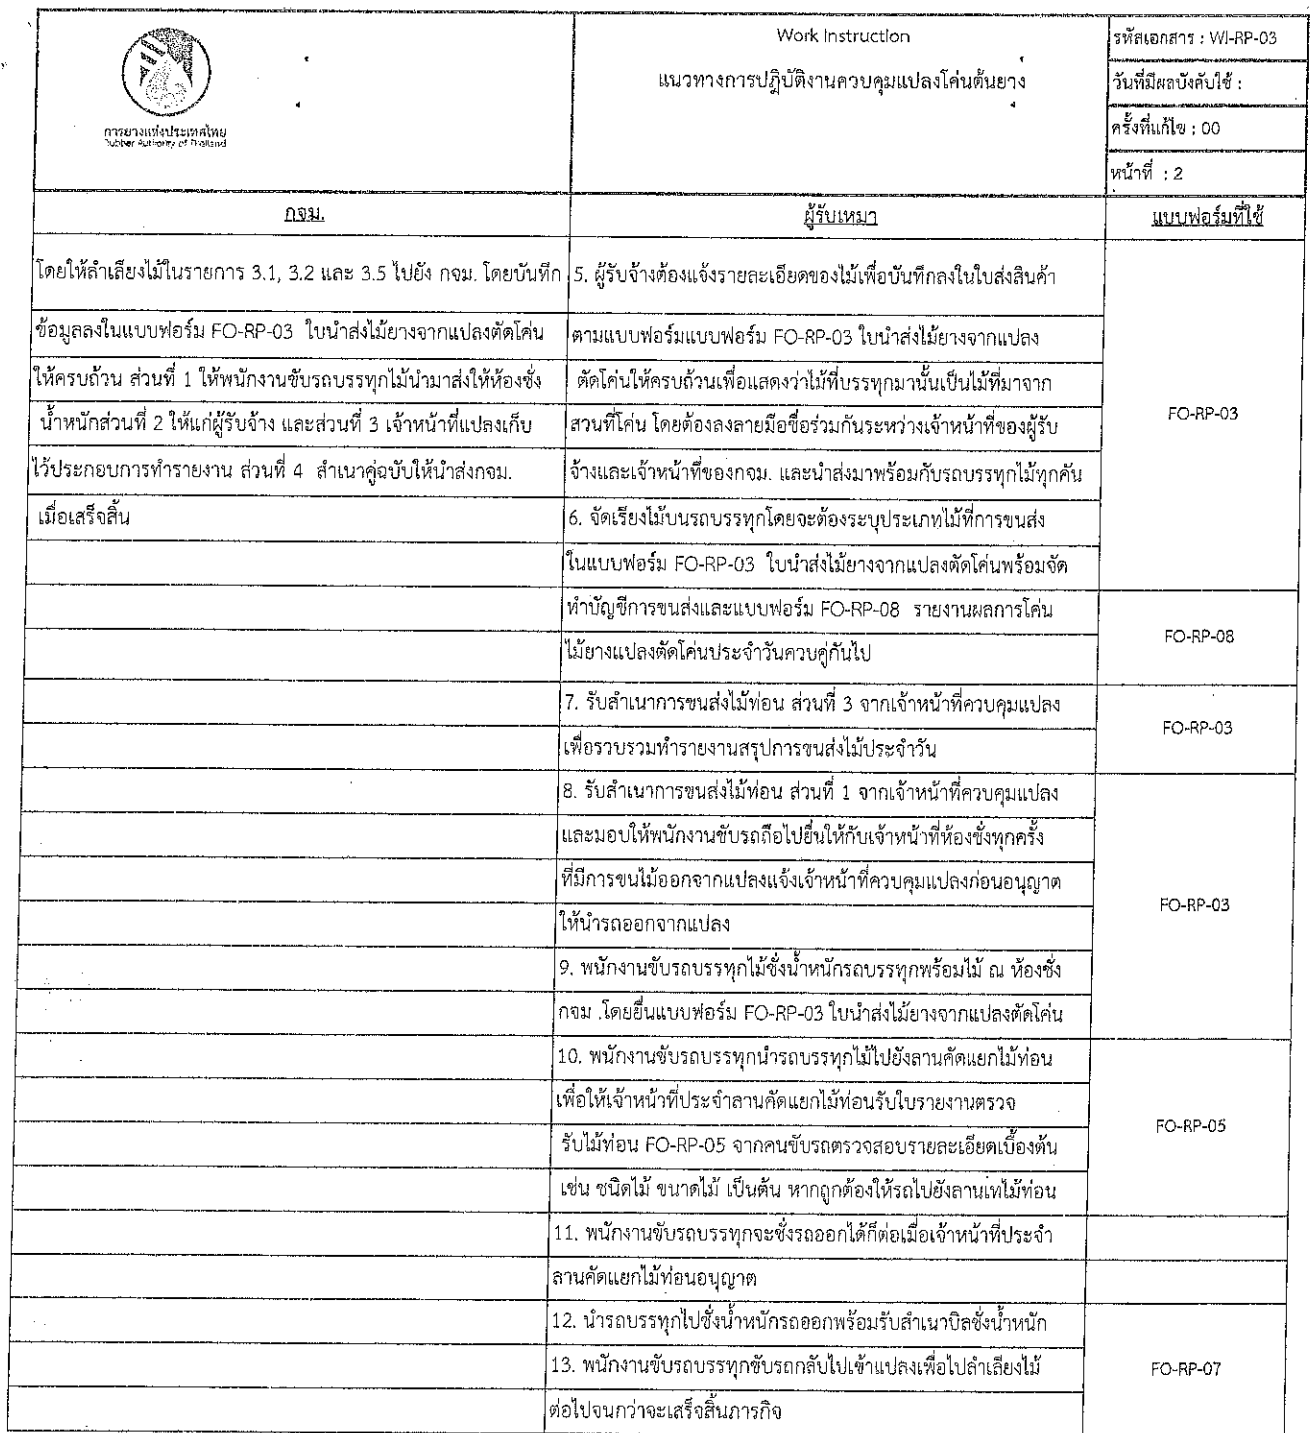 การยางแห่งประเทศไทย
Rubber Authority of Thailand
Work Instruction
แนวทางการปฏิบัติงานควบคุมแปลงโค่นต้นยาง
รหัสเอกสาร : WI-RP-03
วันที่มีผลบังคับใช้ :
ครั้งที่แก้ไข : 00
หน้าที่ : 2
กจม.
ผู้รับเหมา
แบบฟอร์มที่ใช้
โดยให้ลำเลียงไม้ในรายการ 3.1, 3.2 และ 3.5 ไปยัง กจม. โดยบันทึก
ข้อมูลลงในแบบฟอร์ม FO-RP-03 ใบนำส่งไม้ยางจากแปลงตัดโค่น
ให้ครบถ้วน ส่วนที่ 1 ให้พนักงานขับรถบรรทุกไม้นำมาส่งให้ห้องชั่ง
น้ำหนักส่วนที่ 2 ให้แก่ผู้รับจ้าง และส่วนที่ 3 เจ้าหน้าที่แปลงเก็บ
ไว้ประกอบการทำรายงาน ส่วนที่ 4 สำเนาคู่ฉบับให้นำส่งกจม.
เมื่อเสร็จสิ้น
5. ผู้รับจ้างต้องแจ้งรายละเอียดของไม้เพื่อบันทึกลงในใบส่งสินค้า
ตามแบบฟอร์มแบบฟอร์ม FO-RP-03 ใบนำส่งไม้ยางจากแปลง
ตัดโค่นให้ครบถ้วนเพื่อแสดงว่าไม้ที่บรรทุกมานั้นเป็นไม้ที่มาจาก
สวนที่โค่น โดยต้องลงลายมือชื่อร่วมกันระหว่างเจ้าหน้าที่ของผู้รับ
จ้างและเจ้าหน้าที่ของกจม. และนำส่งมาพร้อมกับรถบรรทุกไม้ทุกคัน
6. จัดเรียงไม้บนรถบรรทุกโดยจะต้องระบุประเภทไม้ที่การขนส่ง
ในแบบฟอร์ม FO-RP-03 ใบนำส่งไม้ยางจากแปลงตัดโค่นพร้อมจัด
FO-RP-03
ทำบัญชีการขนส่งและแบบฟอร์ม FO-RP-08 รายงานผลการโค่น
ไม้ยางแปลงตัดโค่นประจำวันควบคู่กันไป
FO-RP-08
7. รับสำเนาการขนส่งไม้ท่อน ส่วนที่ 3 จากเจ้าหน้าที่ควบคุมแปลง
เพื่อรวบรวมทำรายงานสรุปการขนส่งไม้ประจำวัน
FO-RP-03
8. รับสำเนาการขนส่งไม้ท่อน ส่วนที่ 1 จากเจ้าหน้าที่ควบคุมแปลง
และมอบให้พนักงานขับรถถือไปยื่นให้กับเจ้าหน้าที่ห้องชั่งทุกครั้ง
ที่มีการขนไม้ออกจากแปลงแจ้งเจ้าหน้าที่ควบคุมแปลงก่อนอนุญาต
ให้นำรถออกจากแปลง
9. พนักงานขับรถบรรทุกไม้ชั่งน้ำหนักรถบรรทุกพร้อมไม้ ณ ห้องชั่ง
กจม .โดยยื่นแบบฟอร์ม FO-RP-03 ใบนำส่งไม้ยางจากแปลงตัดโค่น
FO-RP-03
10. พนักงานขับรถบรรทุกนำรถบรรทุกไม้ไปยังลานคัดแยกไม้ท่อน
เพื่อให้เจ้าหน้าที่ประจำลานคัดแยกไม้ท่อนรับใบรายงานตรวจ
รับไม้ท่อน FO-RP-05 จากคนขับรถตรวจสอบรายละเอียดเบื้องต้น
เช่น ชนิดไม้ ขนาดไม้ เป็นต้น หากถูกต้องให้รถไปยังลานเทไม้ท่อน
FO-RP-05
11. พนักงานขับรถบรรทุกจะชั่งรถออกได้ก็ต่อเมื่อเจ้าหน้าที่ประจำ
ลานคัดแยกไม้ท่อนอนุญาต
12. นำรถบรรทุกไปชั่งน้ำหนักรถออกพร้อมรับสำเนาบิลชั่งน้ำหนัก
13. พนักงานขับรถบรรทุกขับรถกลับไปเข้าแปลงเพื่อไปลำเลียงไม้
ต่อไปจนกว่าจะเสร็จสิ้นภารกิจ
FO-RP-07